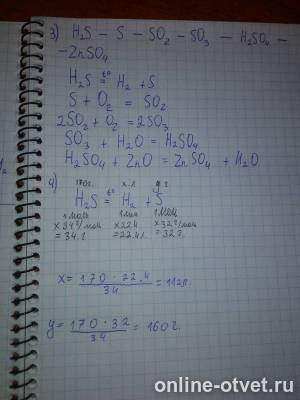 3) H₂S – S – SO₂ – SO₃ – H₂SO₄ –
– ZnSO₄
H₂S =t°= H₂ + S
S + O₂ = SO₂
2SO₂ + O₂ = 2SO₃
SO₃ + H₂O = H₂SO₄
H₂SO₄ + ZnO = ZnSO₄ + H₂O
4) 170г. x л. y г.
H₂S =t°= H₂ + S
1 моль 1 моль 1 моль
x 34 г/моль x 22.4 x 32 г/моль
= 34 г = 22.4 л. = 32 г.
x = 170 · 22.4 / 34 = 112л.
y = 170 · 32 / 34 = 160 г.
online-otvet.ru